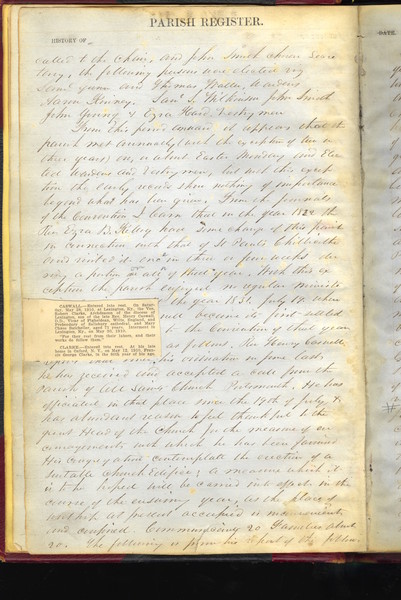 PARISH REGISTER.
HISTORY OF
DATE.
called to the Chair, and John Smith chosen Secre
tary, the following persons were elected viz
and Thomas Waller, Wardens
Aaron Kinney, Sam'l S. Wilkinson John Smith
John & Ezra Vestrymen
From this period onward it appears that the
parish met annually (with the exception of one or
three years) on, or about Easter Monday, and Elec
ted Wardens and Vestrymen, but with this excep
tion the early records show nothing of importance
beyond what has been given. From the journals
of the Convention I learn that in the year 1822 the
Rev. Ezra B. Kellog have some charge of this parish
in connection with that of St Pauls Chillicothe
and visited it once in three or four weeks du
ring a portion of that year. With this ex
ception the parish enjoyed no regular ministe
the year 1831. July 19. when
to
the Convention that year
as follows Rev Henry Caswall
upon his ordination some
he has received and accepted a call from the
Parish of All Saints Church Portsmouth. He has
officiated in that place since the 19th of July, &
has abundant reason to feel thankful to the
great Head of the Church for the measure of en
couragement with which he has been favored
His congregation contemplate the erection of a
suitable Church Edifice; a measure which it
is to be hoped will be carried into effect in the
course of the ensuing year, as the place of
worship at present occupied is inconvenient
and confined. Communicants 20 Families about
20. The following is from his report of the follow
CASWALL—Entered into rest.
May at Lexington, Ky., the Ven.
Robert Clarke, Archdeacon of the diocese of
Lexington, son of the late Rev. Henry Caswall,
D.D., Vicar of Figheldean, Wilts, England, and
Prebendary of Salisbury cathedral, and Mary
Chase Batchellor, aged 71 years. Interment in
"For they rest from their labors, and their
works do follow them."
CLARKE—Entered into rest. At his late
George Clarke, in the year of his age.